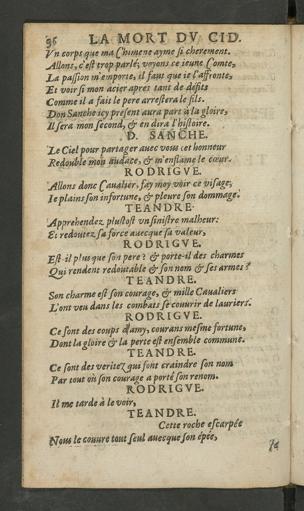 36 LA MORT DV CID.
Vn corps que ma Chimene ayme si cherement.
Allons, c'est trop parlé; voyons ce ieune Comte,
La passion m'emporte, il faut que ie l'affronte,
Et voir si mon acier apres tant de defits
Comme il a fait le pere arrestera le fils.
Don Sanche icy present aura part à la gloire,
Il sera mon second, & en dira l'histoire.
D. SANCHE.
Le Ciel pour partager auec vous cet honneur
Redouble mon audace, & m'enflame le cœur.
RODRIGVE.
Allons donc Caualier, fay moy voir ce visage,
Ie plains son infortune, & pleure son dommage.
TEANDRE.
Apprehendez plustost vn sinistre malheur:
Et redoutez sa force auecque sa valeur,
RODRIGVE.
Est-il plus que son pere? & porte-il des charmes
Qui rendent redoutable & son nom & ses armes?
TEANDRE.
Son charme est son courage, & mille Caualiers
L'ont veu dans les combats se couurir de lauriers.
RODRIGVE.
Ce sont des coups d'amy, courans mesme fortune,
Dont la gloire & la perte est ensemble commune.
TEANDRE.
Ce sont des veritez qui font craindre son nom
Par tout où son courage a porté son renom.
RODRIGVE.
Il me tarde à le voir,
TEANDRE.
Cette roche escarpée
Nous le couure tout seul auecque son épée,